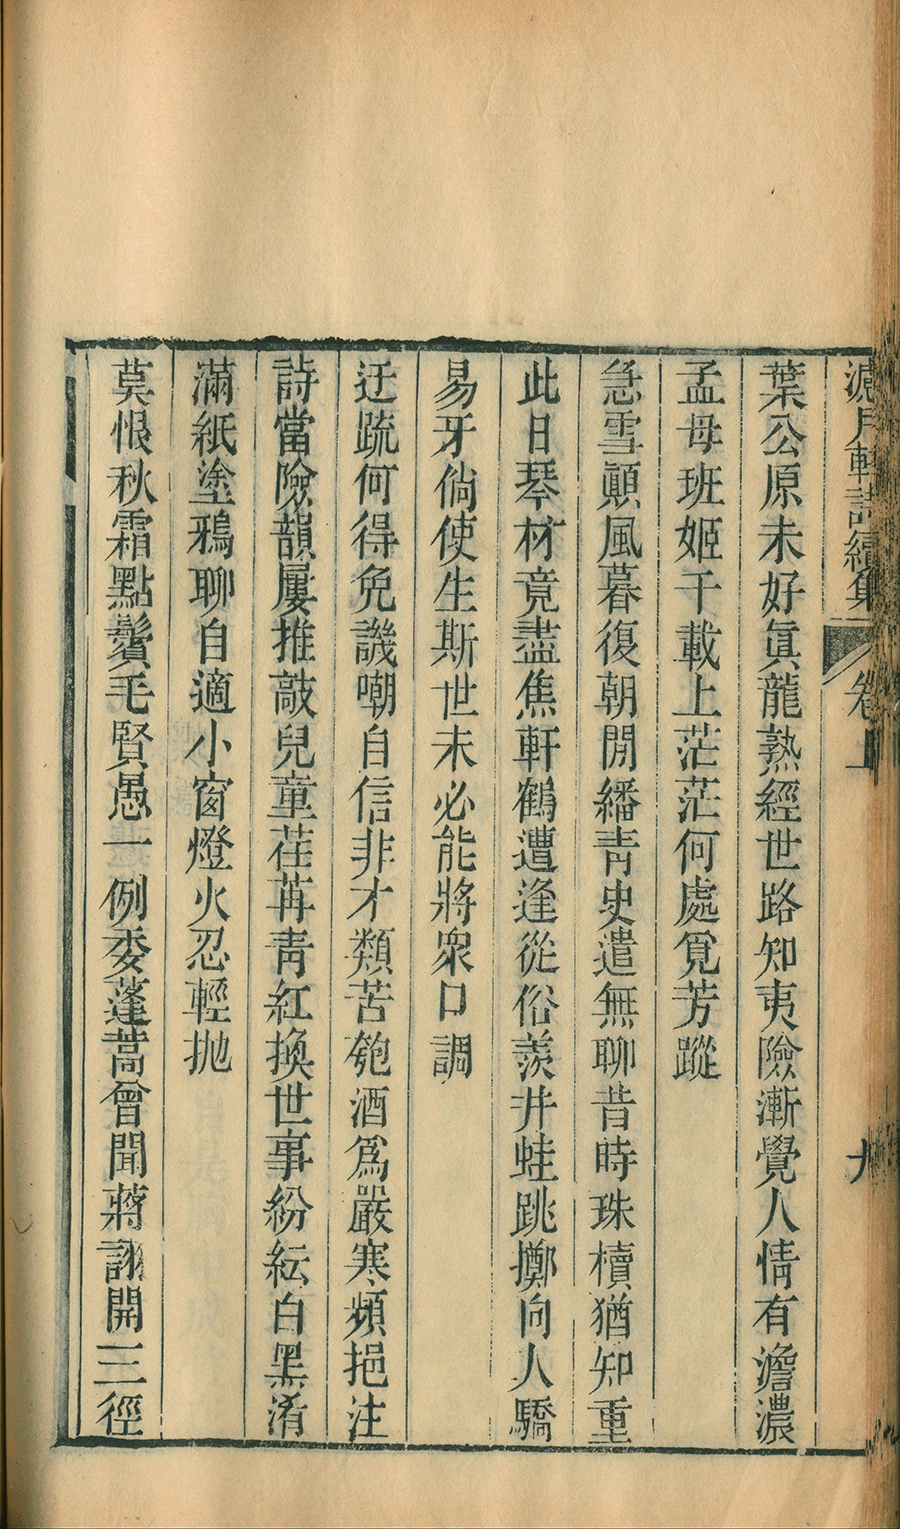 濾月軒詩續集 卷上 九
葉公原未好眞龍熟經世路知夷險漸覺人情有澹濃
孟母班姬千載上茫茫何處覓芳蹤
急雪顚風暮復朝閒繙靑史遣無聊昔時珠櫝猶知重
此日琴材竟盡焦軒鶴遭逢從俗羨井蛙跳擲向人驕
易牙倘使生斯世未必能將衆口調
迂疏何得免譏嘲自信非才類苦匏酒爲嚴寒頻挹注
詩當險韻屢推敲兒童荏苒靑紅換世事紛紜白黑淆
滿紙塗鴉聊自適小窗燈火忍輕拋
莫恨秋霜點鬢毛賢愚一例委蓬蒿曾聞蔣詡開三徑